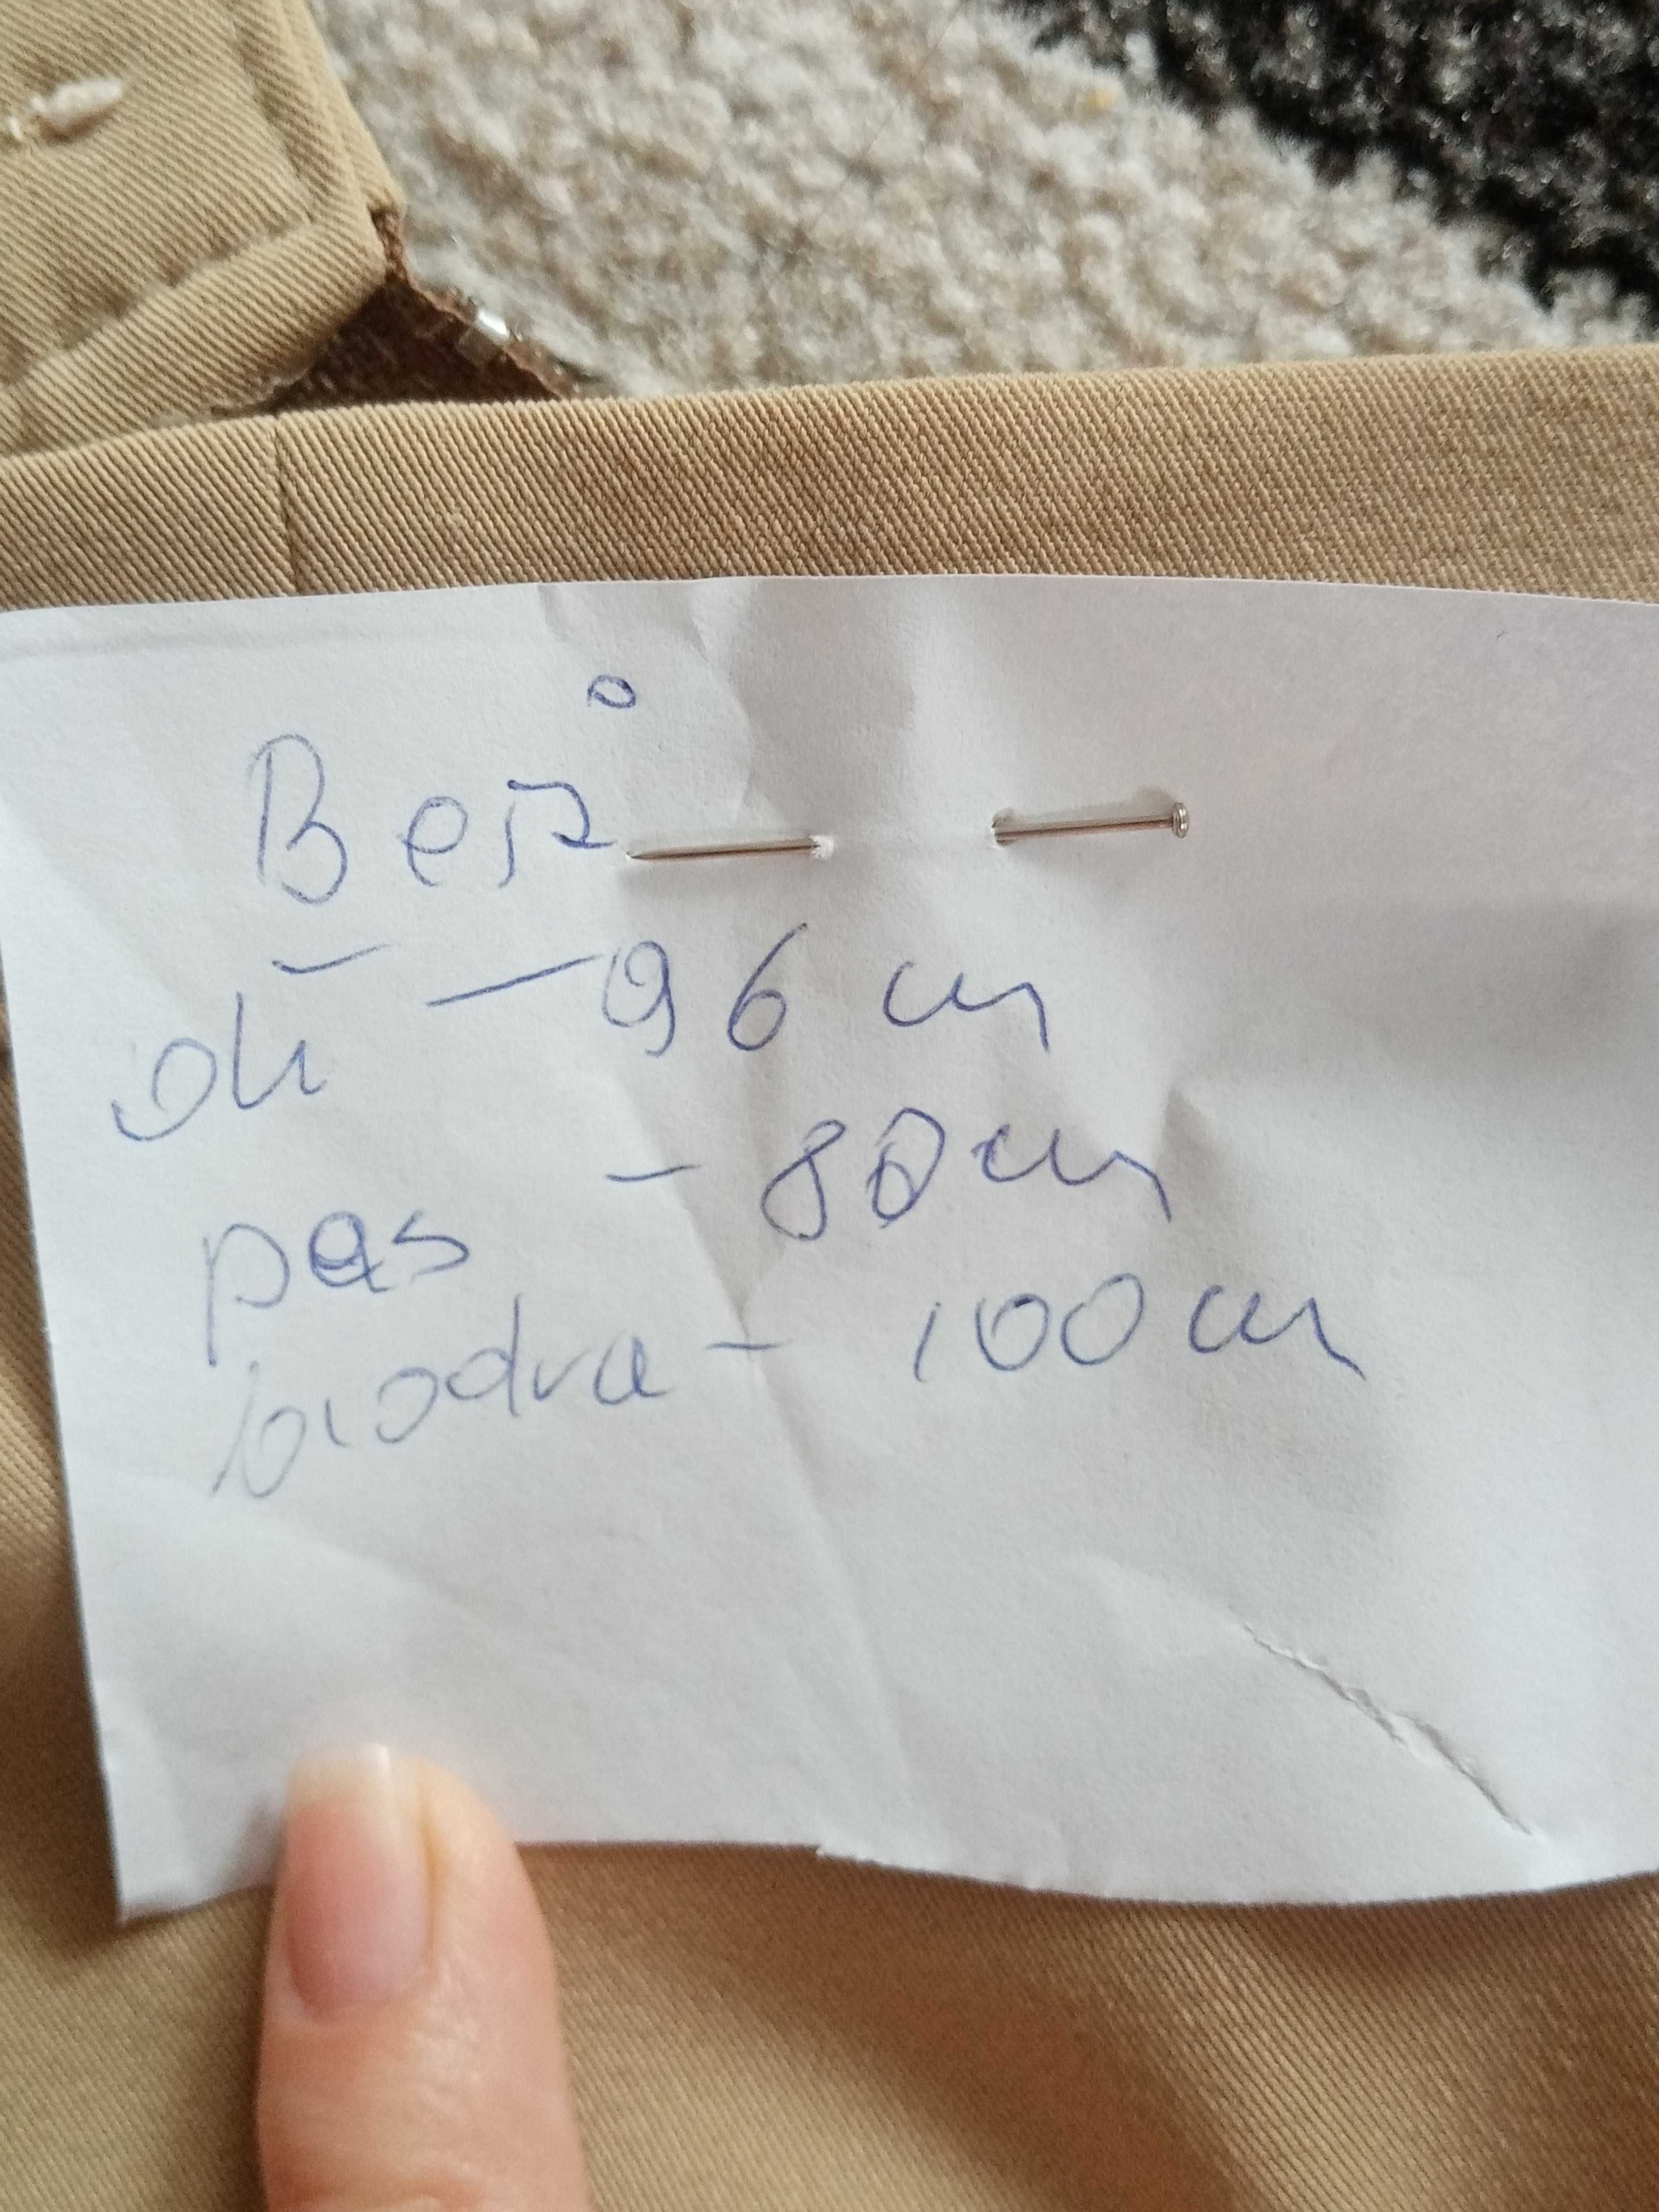 Beż
dł - 96 cm
pas - 80 cm
biodra - 100 cm